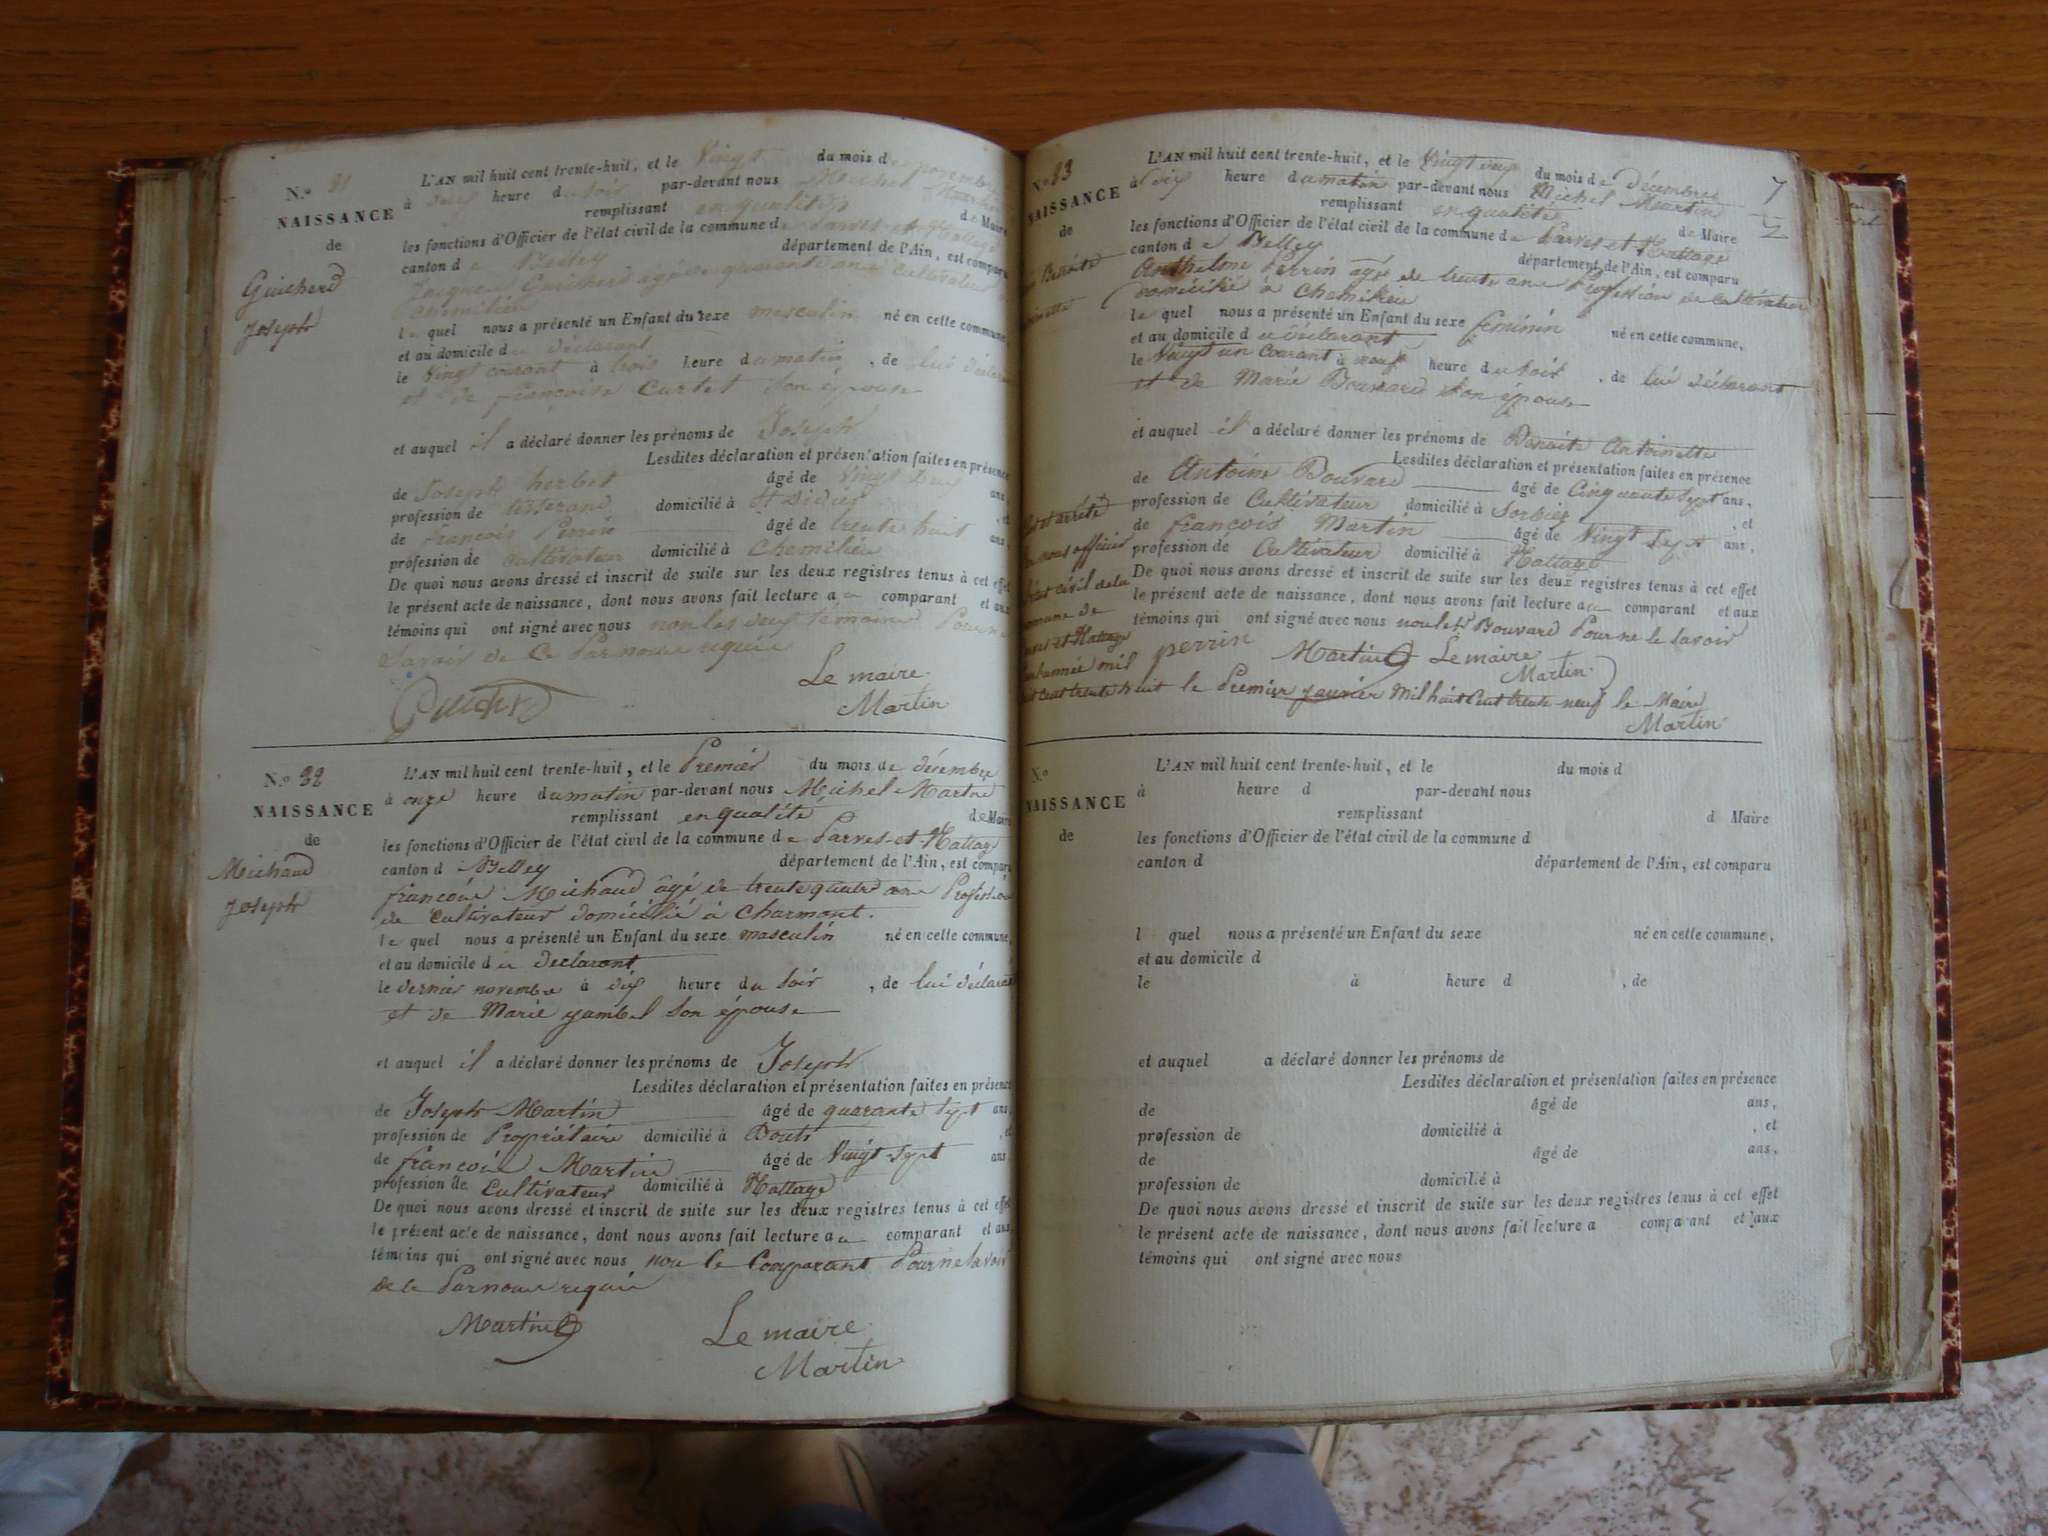 N.º 31
NAISSANCE
de
Guicherd
Joseph
L'AN mil huit cent trente-huit, et le Vingt du mois de novembre
à heure du soir par-devant nous Michel Martin
remplissant en qualité de Maire
les fonctions d'Officier de l'état civil de la commune de Parves et Nattage
canton de Belley département de l'Ain, est comparu
Jacques Guicherd agé de quarante ans cultivateur
Chemilieu
le quel nous a présenté un Enfant du sexe masculin né en cette commune,
et au domicile du déclarant
le Vingt courant à trois heure du matin, de lui déclarant
et de françoise Curtet son épouse
et auquel il a déclaré donner les prénoms de Joseph
Lesdites déclaration et présentation faites en présence
de Joseph herbet âgé de Vingt ans,
profession de tisserand domicilié à St Didier, et
de françois Perrin âgé de trente huit ans,
profession de cultivateur domicilié à Chemilieu
De quoi nous avons dressé et inscrit de suite sur les deux registres tenus à cet effet
le présent acte de naissance, dont nous avons fait lecture au comparant et aux
témoins qui ont signé avec nous non les deux témoins Pour ne
Savoir de Ce Par nous requis
Le maire
Martin
N.º 32
NAISSANCE
de
Michaud
Joseph
L'AN mil huit cent trente-huit, et le Premier du mois de décembre
à onze heure du matin par-devant nous Michel Martin
remplissant en qualité de Maire
les fonctions d'Officier de l'état civil de la commune de Parves et Nattage
canton d Belley département de l'Ain, est comparu
françois Michaud âgé de trente quatre ans Profession
de Cultivateur domicilié à Charmont.
le quel nous a présenté un Enfant du sexe masculin né en cette commune,
et au domicile du déclarant
le dernier novembre à dix heure du soir, de lui déclarant
et de Marie yambel son épouse
et auquel il a déclaré donner les prénoms de Joseph
Lesdites déclaration et présentation faites en présence
de Joseph Martin âgé de quarante sept ans,
profession de Propriétaire domicilié à, et
de françois Martin âgé de Vingt sept ans
profession de Cultivateur domicilié à Nattage
De quoi nous avons dressé et inscrit de suite sur les deux registres tenus à cet effet
le présent acte de naissance, dont nous avons fait lecture au comparant et aux
témoins qui ont signé avec nous non le Comparant Pour ne savoir
de ce Par nous requis
Martin
Le maire
Martin
N.º 33
NAISSANCE
de
L'AN mil huit cent trente-huit, et le Vingt deux du mois de décembre
à dix heure du matin par-devant nous Michel Martin
remplissant en qualité de Maire
les fonctions d'Officier de l'état civil de la commune de Parves et Nattage
canton de Belley département de l'Ain, est comparu
Anthelme Perrin agé de trente ans Profession de Cultivateur
domicilié à Chemilieu
le quel nous a présenté un Enfant du sexe féminin né en cette commune,
et au domicile du déclarant
le Vingt un Courant à neuf heure du soir, de lui déclarant
et de Marie Bouvard son épouse
et auquel il a déclaré donner les prénoms de Benoite Antoinette
Lesdites déclaration et présentation faites en présence
de Antoine Bouvard âgé de Cinquante sept ans,
profession de Cultivateur domicilié à Sorbier, et
de françois Martin âgé de Vingt sept ans,
profession de Cultivateur domicilié à Nattage
De quoi nous avons dressé et inscrit de suite sur les deux registres tenus à cet effet
le présent acte de naissance, dont nous avons fait lecture au comparant et aux
témoins qui ont signé avec nous non led Bouvard Pour ne le savoir
perrin Martin Le maire
Martin
et arrêté
nous officier
civil de la
de
et Nattage
mil
Cent trente huit le Premier janvier Mil huit Cent trente neuf le Maire
Martin
N.º
NAISSANCE
de
L'AN mil huit cent trente-huit, et le du mois d
à heure d par-devant nous
remplissant d Maire
les fonctions d'Officier de l'état civil de la commune d
canton d département de l'Ain, est comparu
l quel nous a présenté un Enfant du sexe né en cette commune,
et au domicile d
le à heure d, de
et auquel a déclaré donner les prénoms de
Lesdites déclaration et présentation faites en présence
de âgé de ans,
profession de domicilié à, et
de âgé de ans,
profession de domicilié à
De quoi nous avons dressé et inscrit de suite sur les deux registres tenus à cet effet
le présent acte de naissance, dont nous avons fait lecture a comparant et aux
témoins qui ont signé avec nous